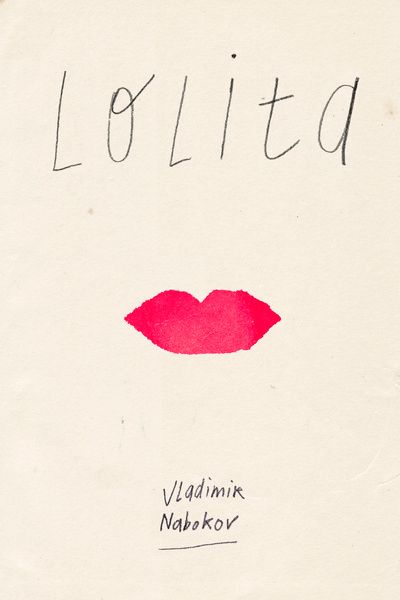 Lolita
Vladimir
Nabokov